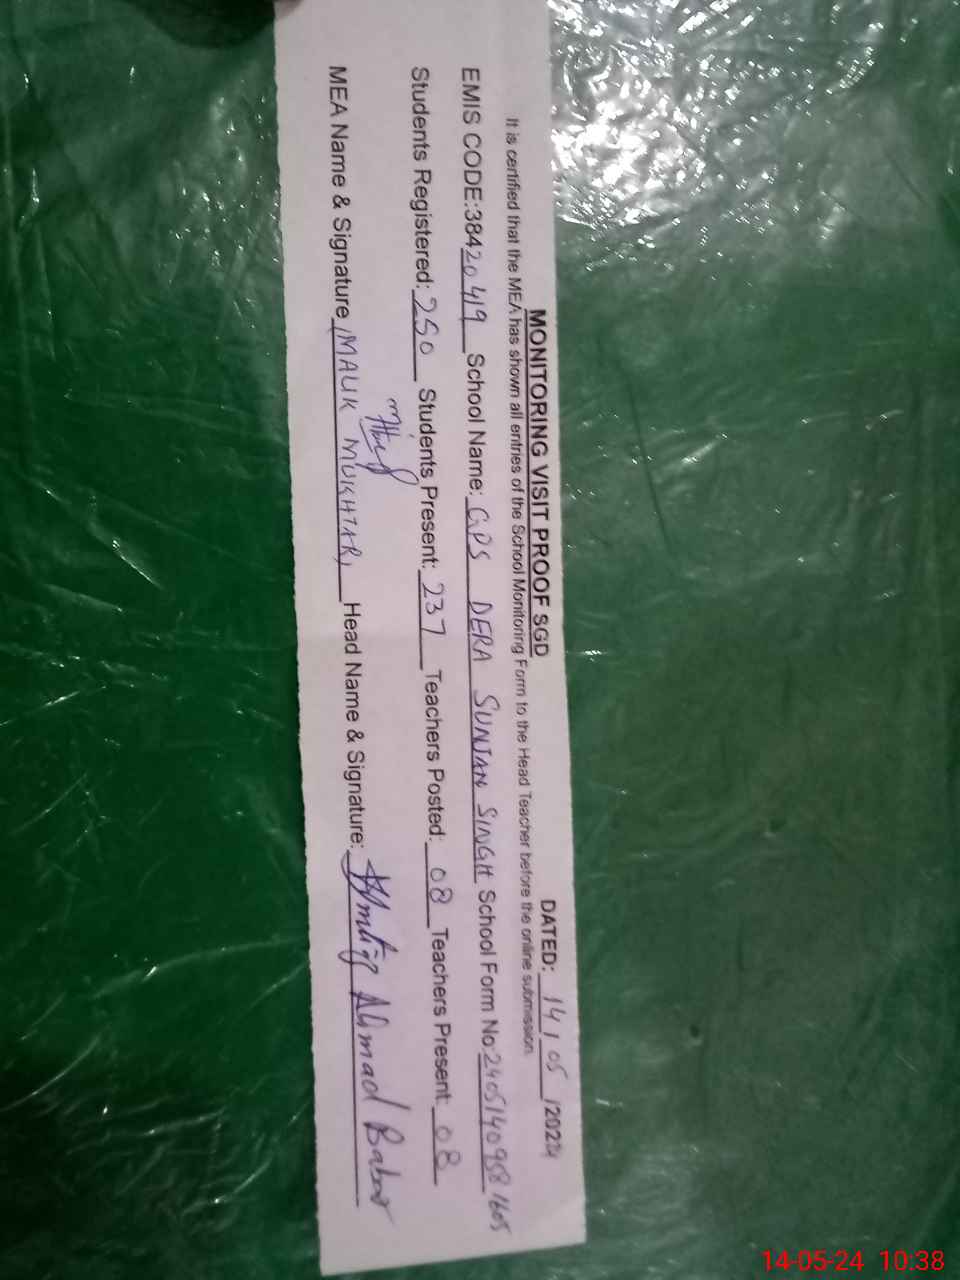 MONITORING VISIT PROOF SGD
DATED: 14 / 05 /2024
It is certified that the MEA has shown all entries of the School Monitoring Form to the Head Teacher before the online submission.
EMIS CODE:38420419 School Name: GPS DERA SUNJAN SINGH School Form No:2405140958 1605
Students Registered: 250 Students Present: 237 Teachers Posted: 08 Teachers Present: 08
MEA Name & Signature (MALIK MUKHTAR) Head Name & Signature: Ahmad Babar
14-05-24 10:38